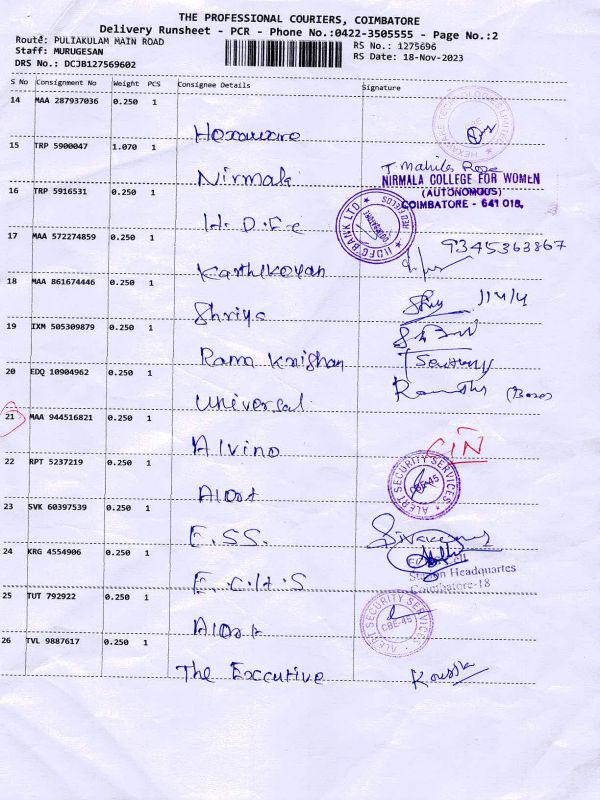 THE PROFESSIONAL COURIERS, COIMBATORE
Delivery Runsheet - PCR - Phone No.:0422-3505555 - Page No.:2
Route: PULIAKULAM MAIN ROAD
Staff: MURUGESAN
DRS No.: DCJB127569602
RS No.: 1275696
RS Date: 18-Nov-2023
S No Consignment No Weight PCS Consignee Details Signature
14 MAA 287937036 0.250 1
Hexaware
15 TRP 5900047 1.070 1
Nirmala
NIRMALA COLLEGE FOR WOMEN
(AUTONOMOUS)
COIMBATORE - 641 018,
16 TRP 5916531 0.250 1
H.D.F.C
HDFC BANK LTD
17 MAA 572274859 0.250 1
Karthikeyan
9345363867
18 MAA 861674446 0.250 1
Shriya
19 IXM 505309879 0.250 1
Rama Krishan
20 EDQ 10904962 0.250 1
Universal
21 MAA 944516821 0.250 1
Alvino
CIN
22 RPT 5237219 0.250 1
Alert
ALERT SECURITY SERVICES
CBE-45
23 SVK 60397539 0.250 1
E.SS.
24 KRG 4554906 0.250 1
E.C.H.S
Station Headquartes
Coimbatore-18
25 TUT 792922 0.250 1
Alert
ALERT SECURITY SERVICES
CBE-45
26 TVL 9887617 0.250 1
The Executive